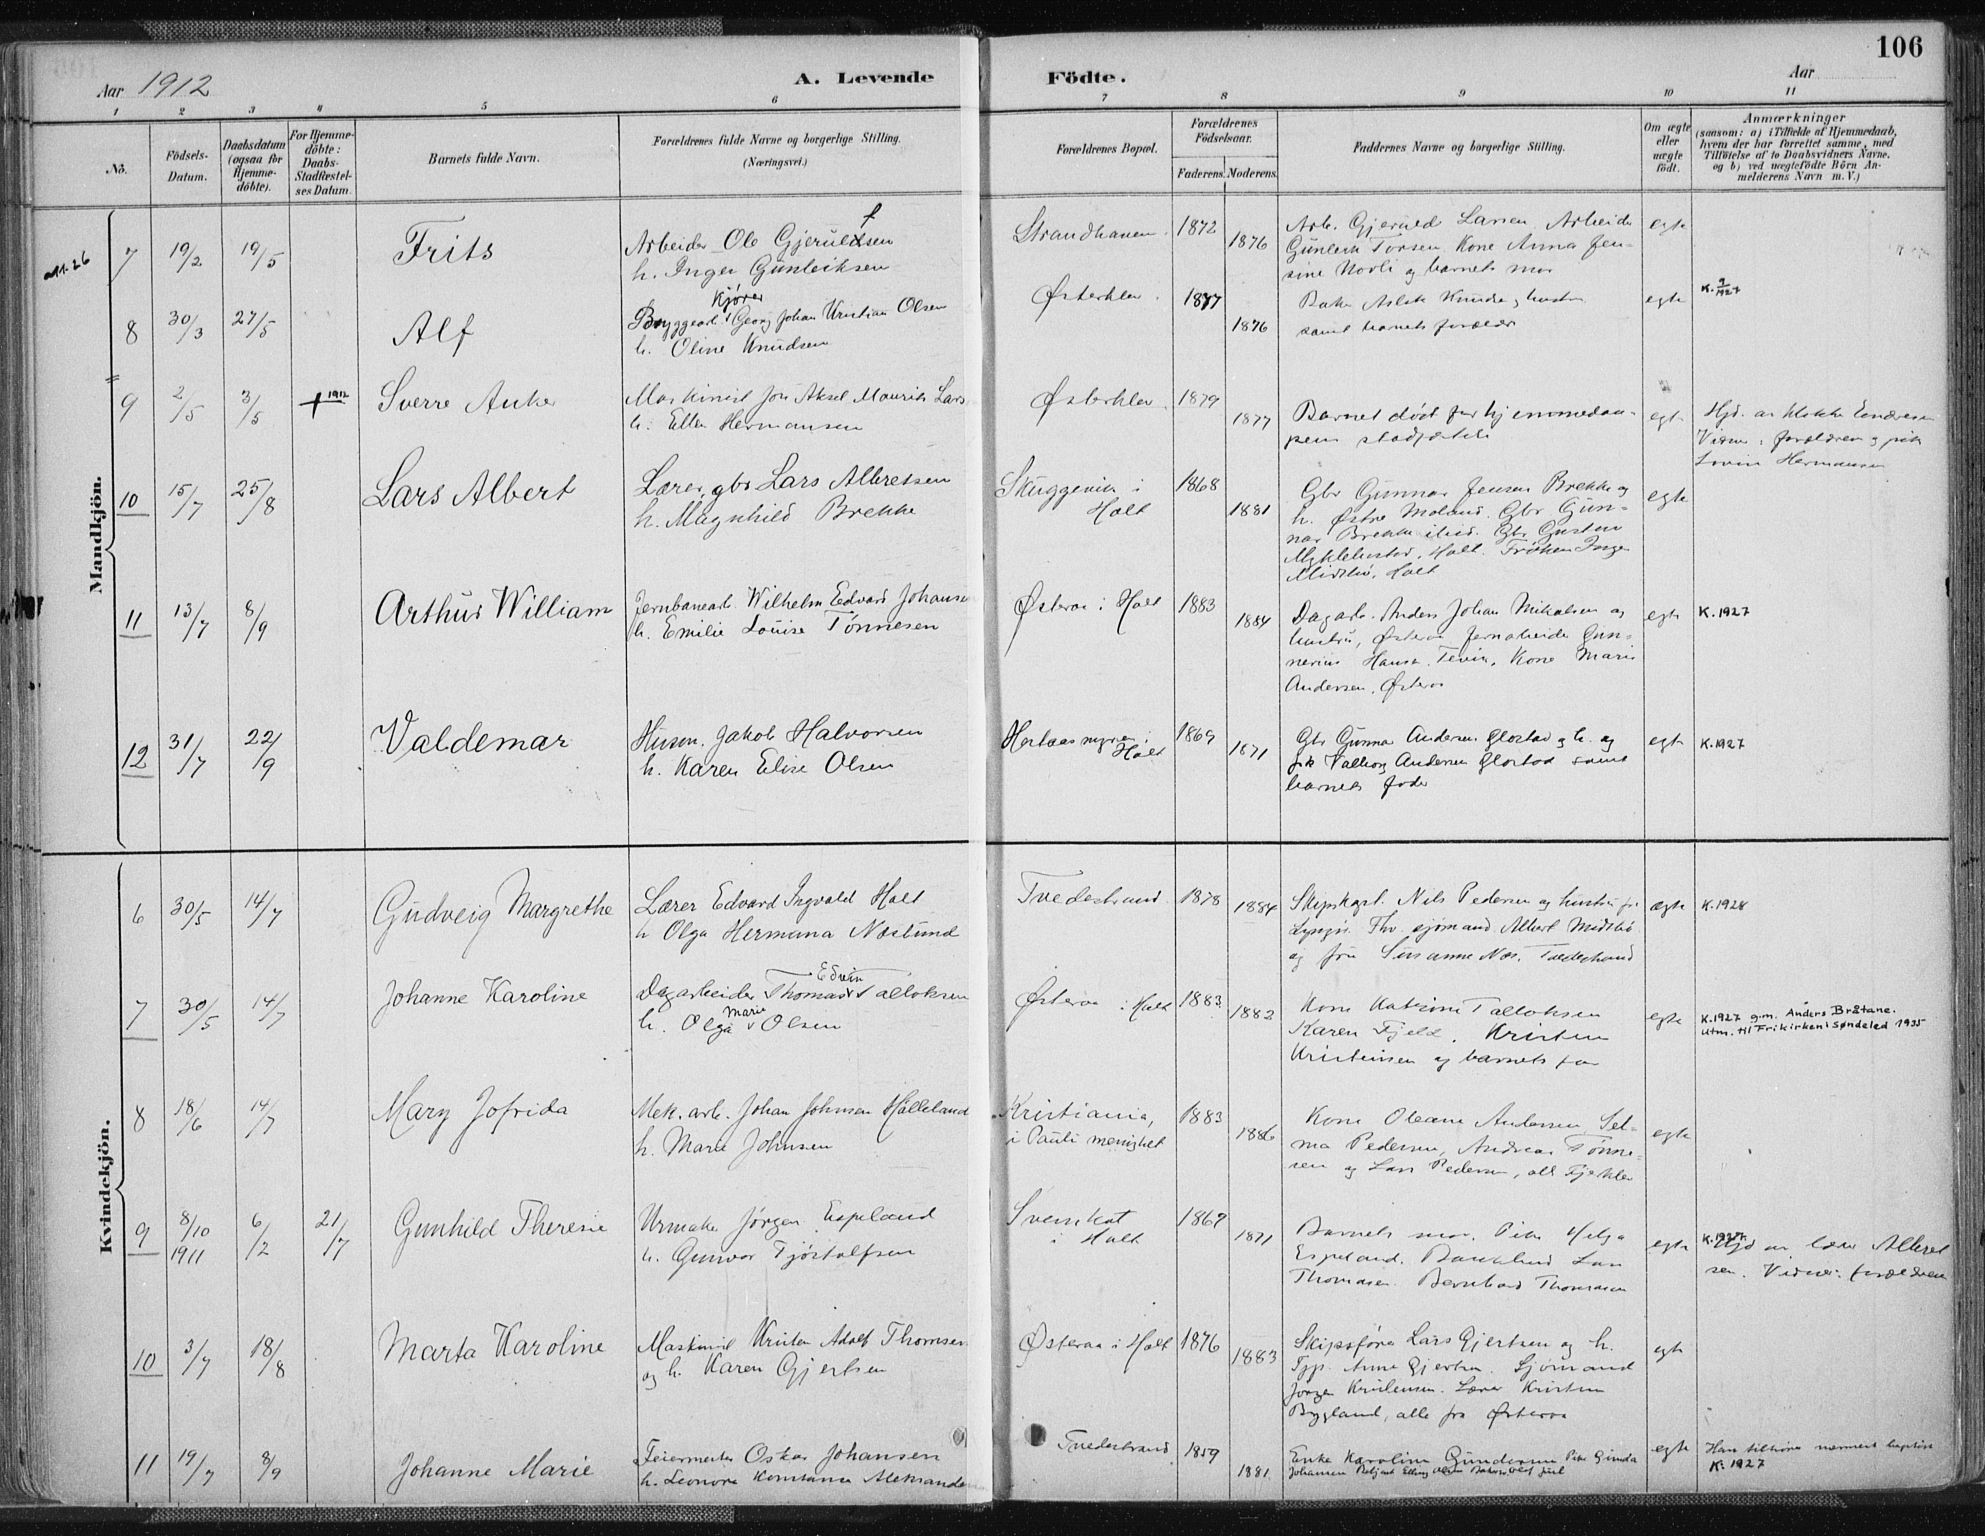 106
Aar 1912
A. Levende
Födte.
Aar
1 2 3 4 5 6 7 8 9 10 11
No.
Födsels-
Datum.
Daabsdatum
(ogsaa for
Hjemme-
döbte).
For Hjemme-
döbte:
Daabs-
Stadfæstel-
ses Datum.
Barnets fulde Navn.
Forældrenes fulde Navne og borgerlige Stilling.
(Næringsvei.)
Forældrenes Bopæl.
Forældrenes
Födselsaar.
Faderens. Moderens.
Faddernes Navne og borgerlige Stilling.
Om ægte
eller
uægte
födt.
Anmærkninger
(saasom: a) i Tilfælde af Hjemmedaab,
hvem der har forrettet samme, med
Tilföielse af to Daabsvidners Navne,
og b) ved uægtefödte Börn An-
melderens Navn m. V.)
Mandkjön.
7 19/2 19/5 Frits
Arbeider Ole Gjerulfsen
h. Inger Gunleiksen
Strandhaven 1872 1876
Arb. Gjerulf Larsen Arbeider
Gunleik Torsen. Kone Anna Jen-
sine Hovli og barnets mor
egte
8 30/3 27/5 Alf
Kjører
Bryggearb. Georg Johan Kristian Olsen
h. Oline Knudsen
Østerklev 1877 1876
samt barnets forældr
egte
K. 2/1927
9 2/5 3/5 + 1912 Sverre Anker
Maskinist Jon Aksel Mourits Lars
h. Ellen Hermansen
Østerklev 1879 1877
Barnet død før hjemmedaa-
pens stadfæstelse
egte
Vidne: forældren og pike
Lovise Hermansen
10 15/7 25/8 Lars Albert
Lærer, gbr Lars Albretsen
h. Magnhild Brekke
Skuggevik i
Holt
1868 1881
Gbr Gunnar Jensen Brekke og
h. Østre Moland. Gbr Gun-
nar Brekke ibid. Gbr Gusten
Myklebostad, Holt. Frøken Inga
Midtbø, Holt
egte
11 13/7 8/9 Arthur William
Jernbanearb. Wilhelm Edvard Johanse
h. Emilie Louise Tønnesen
Østeraa i Holt 1883 1884
Dagarb. Anders Johan Mikalsen og
hustru, Østeraa Jernarbeider Gun-
nerius Hansen. Tevik, Kone Maria
Andersen, Østeraa
egte
K. 1927
12 31/7 22/9 Valdemar
Husm. Jakob Halvorsen
h. Karen Elise Olsen
Hertaasmyren i
Holt
1869 1871
Gbr Gunnar Andersen Glostad og h. og
pik Valborg Andersen Glostad samt
barnets fader
egte
K. 1927
Kvindekjön.
6 30/5 14/7 Gudveig Margrethe
Lærer Edvard Ingvald Holt
h Olga Hermana Næslund
Tvedestrand 1878 1884
Skipskapt. Nils Pedersen og hustru fr
Lyngør. Fhv. sjømand Albert Midtbø
og fru Susanne Næs. Tvedestrand
ægte
K. 1928
7 30/5 14/7 Johanne Karoline
Edvin
Dagarbeider Thomas Talloksen
Marie
h. Olga Olsen
Østeraa i Holt 1883 1882
Kone Katrine Talloksen
Karen Fjeld. Kristen
Kristensen og barnets far
egte
K. 1927 g.m. Anders Bråtane.
Utm. til Frikirken i Søndeled 1935
8 18/6 14/7 Mary Jofrida
Mek. arb. Johan Johnsen Hölleland
h. Marie Johnsen
Kristiania,
i Pauli menighet
1883 1886
Kone Oleane Andersen, Sel-
ma Pedersen, Andreas Tønne-
sen og Lars Pedersen, alle Fjeklev
egte
9 8/10 1911 6/2 21/7 Gunhild Theresie
Urmaker Jørgen Espeland
h. Gunvor Tjøstolfsen
Holt
1869 1871
Barnets mor. Pike Helga
Espeland. Lars
Thomasen. Bernhard Thomasen
egte
Hjd av lærer Albret
sen. Vidner: forældrene
10 3/7 18/8 Marta Karoline
Maskinist Kristen Adolf Thomsen
og h. Karen Gjertsen
Østeraa i Holt 1876 1883
Skipsfører Lars Gjertsen og h.
Typ. Anne Gjertsen Sjömand
Jørgen Kristensen. Lærer Kristen
Bygland, alle fra Østeraa
egte
11 19/7 8/9 Johanne Marie
Feiermester Oskar Johansen
h. Leonora Konstance Aleksanders
Tvedestrand 1859 1881
Enke Karoline Gundersen Pike Gunda
Johansen
egte
Han tilhører nærmest baptist
K. 1927